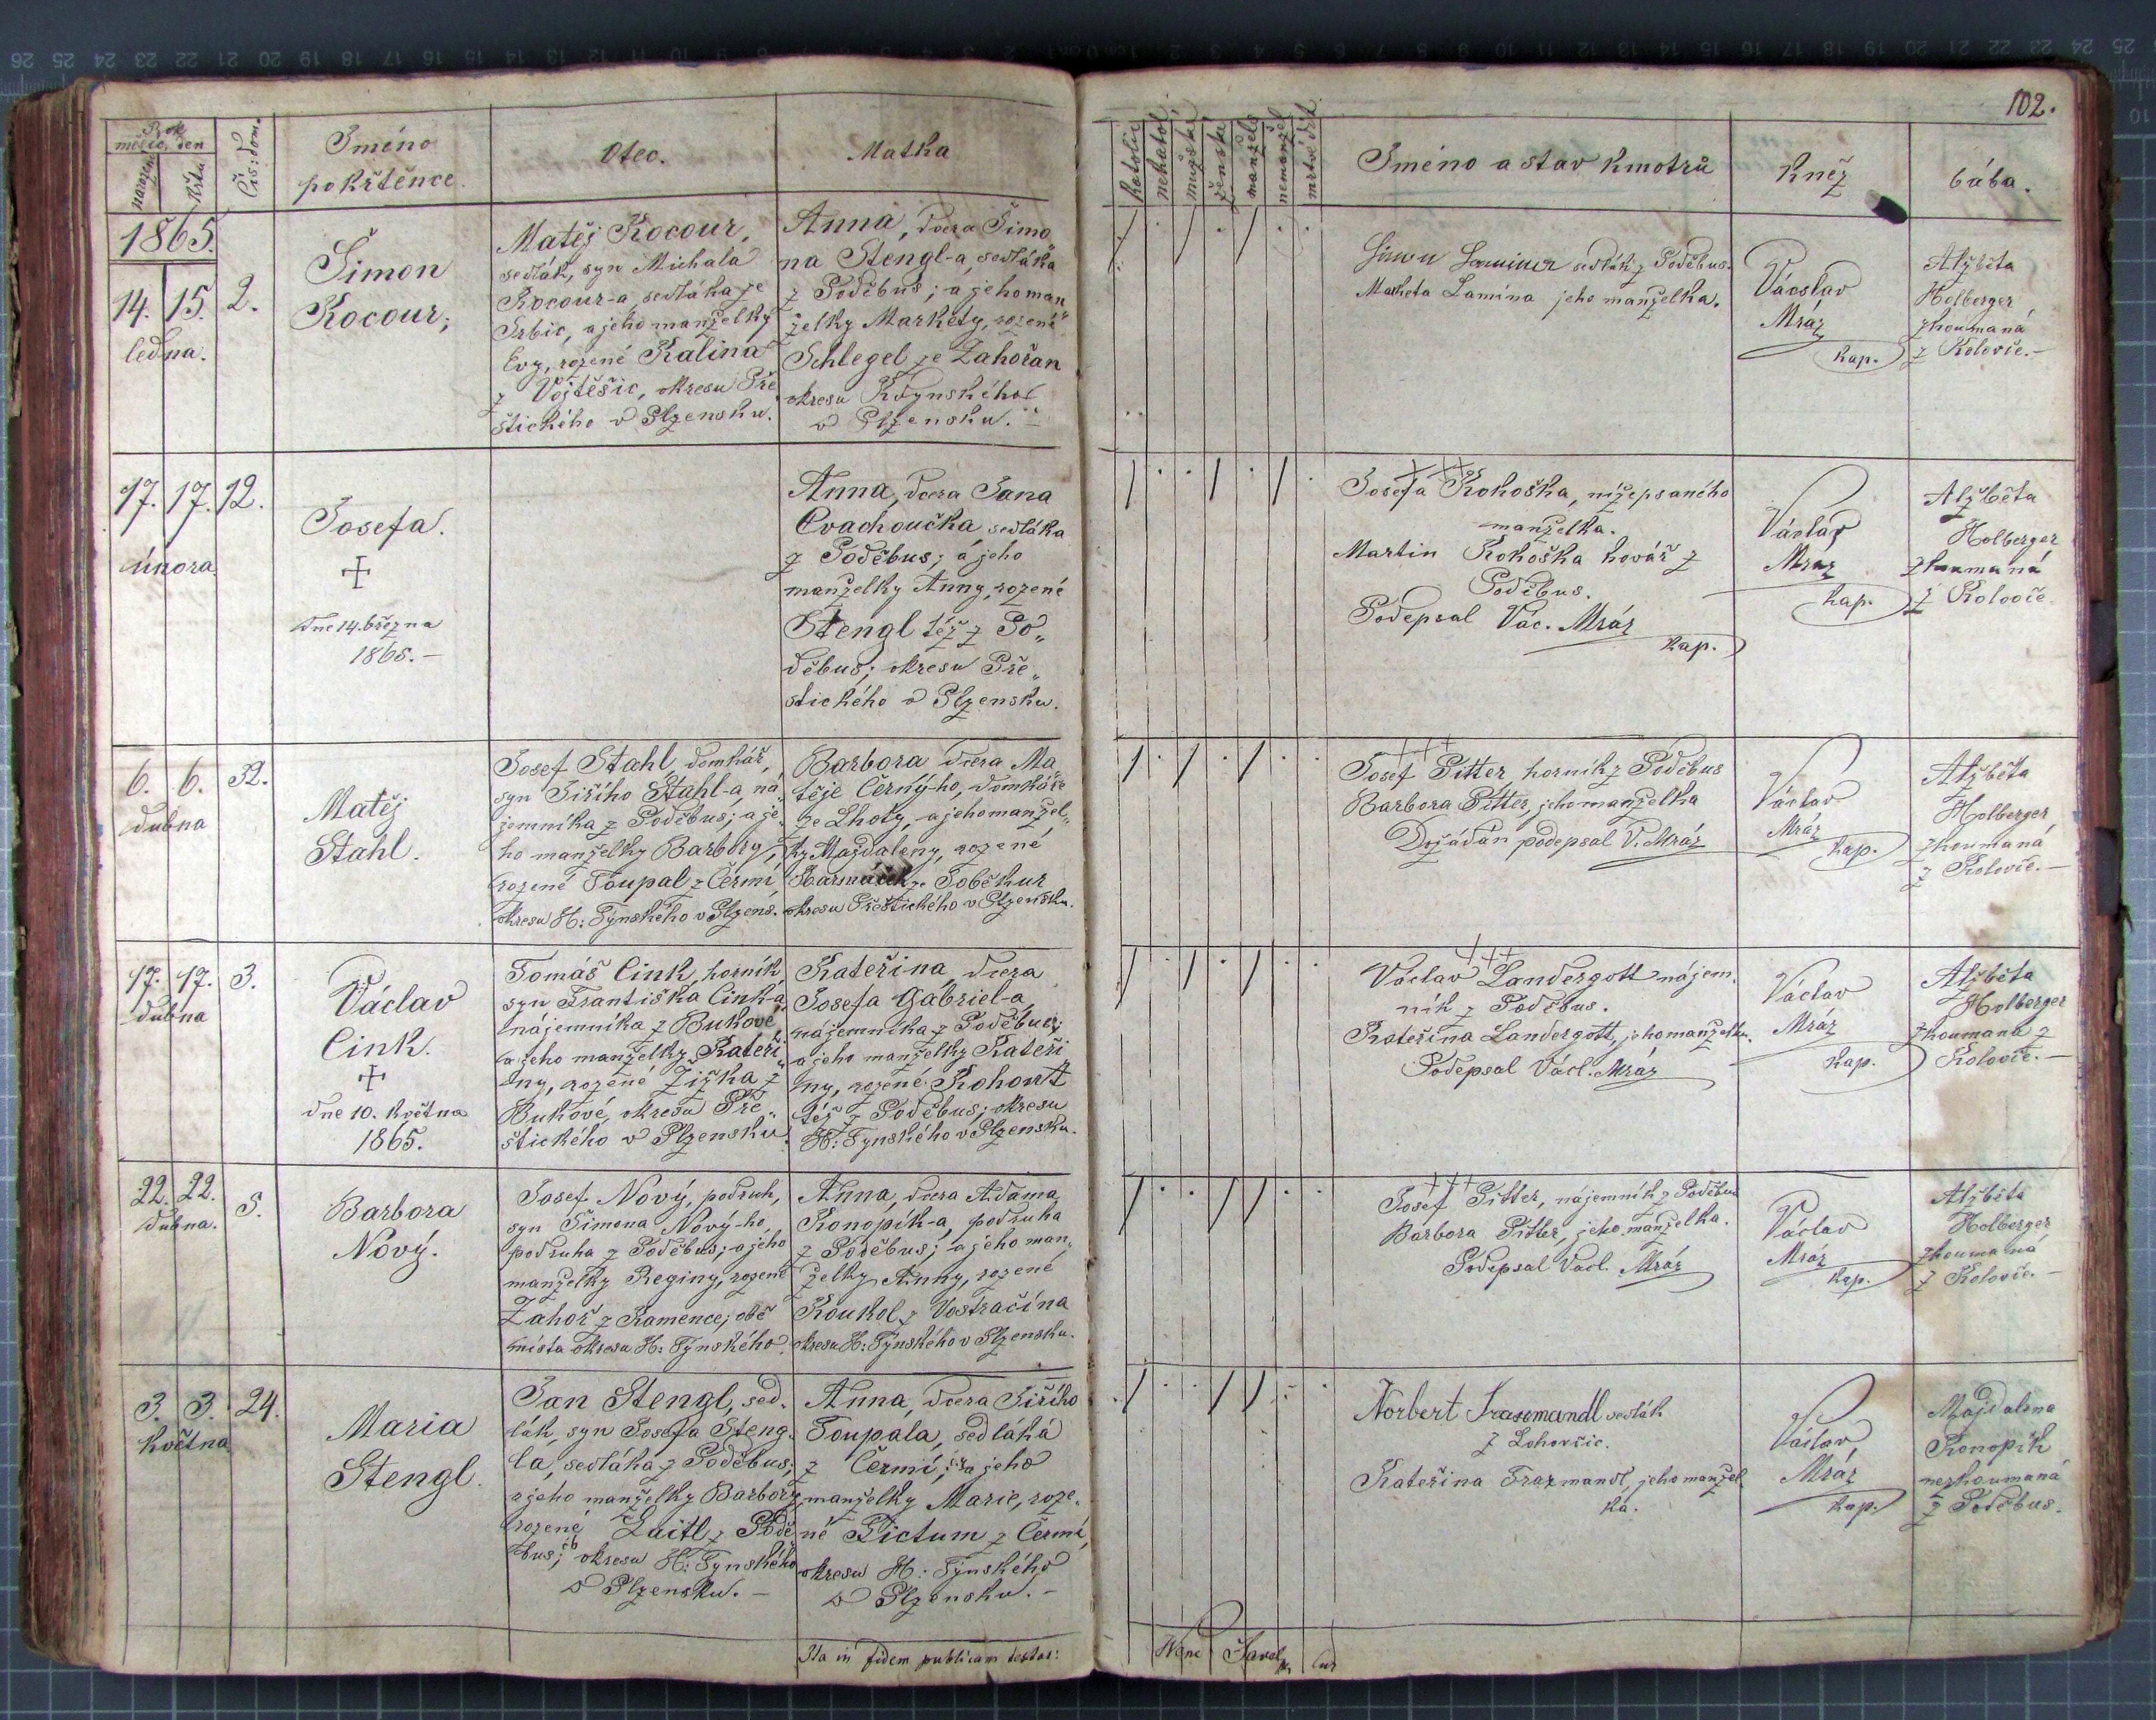 102.
Rok
měsíc, den
narození
křtu
Čís: dom.
Jméno
pokřtěnce.
Otec.
Matka
katolic.
nekatol.
mužské
ženské
manžels
nemanžel
Jméno a stav kmotrů
kněz
bába.
1865.
14. 15.
ledna.
2.
Šimon
Kocour;
Matěj Kocour,
sedlák, syn Michala
Kocour-a sedláka ze
Srbic, a jeho manželky
Evy, rozené Kalina
z Vojtěšic, okresu Pře
štického v Plzensku.
Anna, dcera Šimo
na Stengl-a, sedláka
z Poděbus; a jeho man„
želky Markéty, rozené
Schlegel ze Zahořan
okresu Kdynského
v Plzensku.
sedlák z Poděbus.
Markéta Lamina jeho manželka.
Václav
Mráz
kap.
Alžběta
Holberger
zkoumaná
z Koloveče.
17. 17. 12.
února.
Josefa.
dne 14. března
1865.
Anna, dcera Jana
Cvachoučka sedláka
z Poděbus; a jeho
manželky Anny, rozené
Stengl též z Po„
děbus; okresu Pře„
štického v Plzensku.
+++
Josefa Kokoška, nížepsaného
manželka.
Martin Kokoška kovář z
Poděbus.
Podepsal Vác. Mráz
kap.
Václav
Mráz
kap.
Alžběta
Holberger
zkoumaná
z Koloveče
6. 6. 32.
dubna
Matěj
Stahl.
Josef Stahl domkář,
syn Jiřího Stahl-a, ná„
jemníka z Poděbus; a je„
ho manželky Barbory,
rozené Toupal z Čermí
okresu H: Týnského v Plzens.
Barbora dcera Ma„
těje Černý-ho, domkáře
ze Lhoty, a jeho manžel„
ky Majdaleny, rozené
ze Soběkur
okresu Přeštického v Plzensku.
+++
Josef Pitter horník z Poděbus
Barbora Pitter, jeho manželka
Dožádán podepsal V. Mráz
Václav
Mráz
kap.
Alžběta
Holberger
zkoumaná
z Koloveče.
17. 17. 3.
dubna
Václav
Cink.
dne 10. května
1865.
Tomáš Cink, horník
syn Františka Cink-a
nájemníka z Bukové
a jeho manželky Kateři„
ny, rozené Žižka z
Bukové, okresu Pře„
štického v Plzensku.
Kateřina, dcera
Josefa Gabriel-a
nájemníka z Poděbus;
a jeho manželky Kateři
ny, rozené Kohout
též z Poděbus; okresu
H: Týnského v Plzensku.
+++
Václav Landergott nájem.
ník z Poděbus.
Kateřina Landergott, jeho manželka.
Podepsal Václ. Mráz
Václav
Mráz
kap.
Alžběta
Holberger
zkoumaná z
Koloveče.
22. 22. 5.
dubna.
Barbora
Nový.
Josef Nový, podruh,
syn Šimona Nový-ho,
podruha z Poděbus; a jeho
manželky Reginy, rozené
Zahoř z Kamence; obě
místa okresu H: Týnského.
Anna, dcera Adama
Konopík-a, podruha
z Poděbus; a jeho man„
želky Anny, rozené
Koukol z Vostračína
okresu H: Týnského v Plzensku.
+++
Josef Pitter, nájemník z Poděbus
Barbora Pitter, jeho manželka.
Podepsal Václ. Mráz
Václav
Mráz
kap.
Alžběta
Holberger
zkoumaná
z Koloveče.
3. 3. 24.
května
Maria
Stengl.
Jan Stengl, sed„
lák, syn Josefa Steng„
la, sedláka z Poděbus;
a jeho manželky Barbory
rozené Laitl z Podě
bus; okresu H: Týnského
v Plzensku.
Anna, dcera Jiřího
Toupala, sedláka
z Čermí; a jeho
manželky Marie, roze„
né Pictum z Čermí,
okresu H: Týnského
v Plzensku.
Norbert Frasmandl sedlák
z Lohovčic.
Kateřina Frazmandl, jeho manžel
ka.
Václav
Mráz
kap.
Majdalena
Konopík
nezkoumaná
z Poděbus.
Ita in fidem publicam testor: